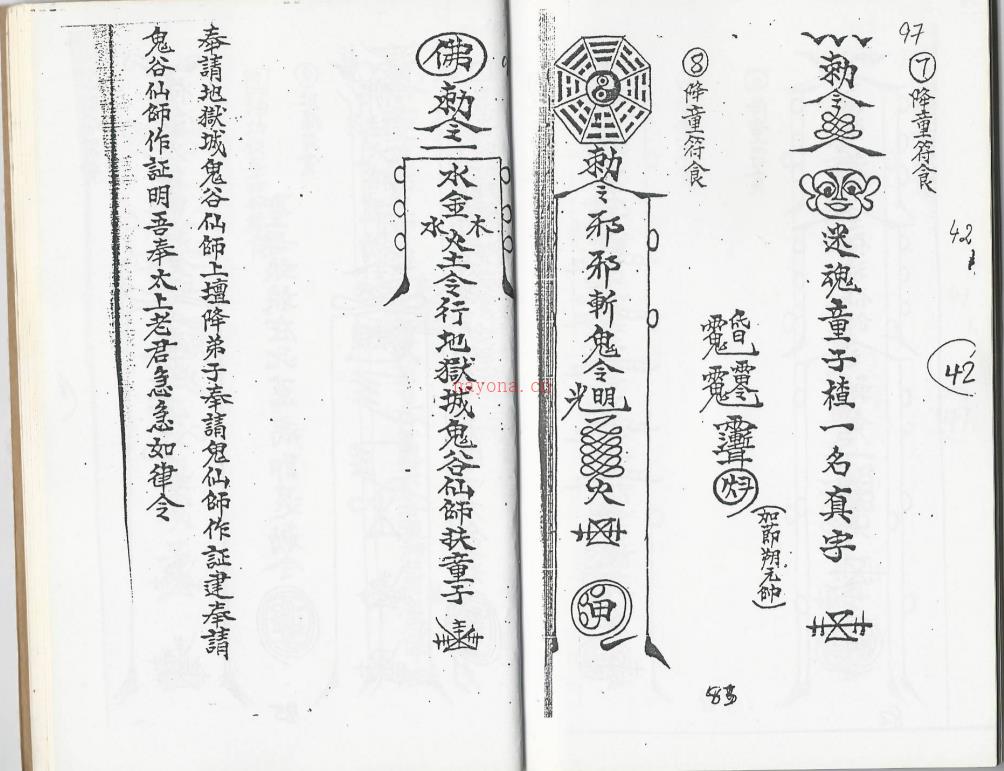 97
⑦降童符食
勅令
迷魂童子楂一名真字
42
42
⑧降童符食
勅令邪邪斬鬼令明火
光
(如節朔元帥)
佛
勅令
水金土令行地獄城鬼谷仙師扶童子
水
木
奉請地獄城鬼谷仙師上壇降弟子奉請鬼仙師作証建奉請
鬼谷仙師作証明吾奉太上老君急急如律令
nayona.cn